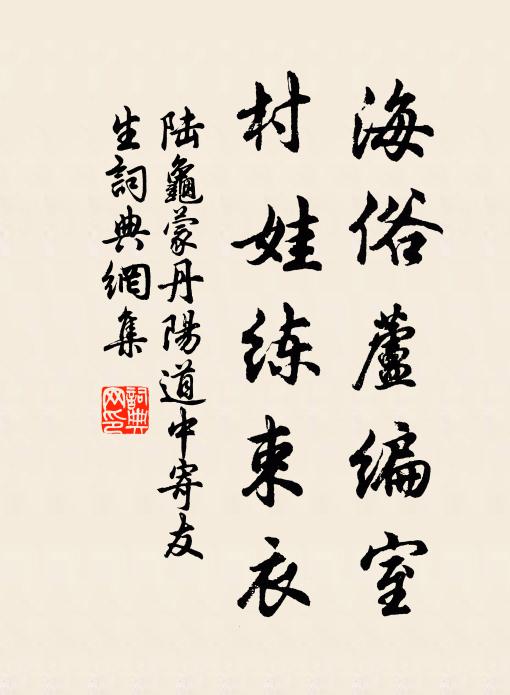 海俗蘆編室
村娃練束衣
陸龜蒙丹陽道中寄友
生詞典網集
詞典
网印